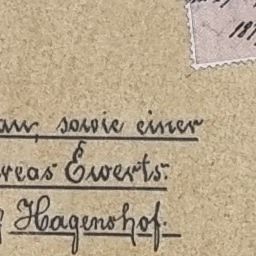 au, sowie einer
reas Ewerts.
Hagenshof.